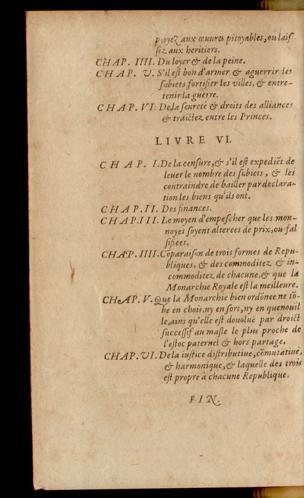 ployez aux œuures pitoyables, ou laissez
aux heritiers.
CHAP. IIII. Du loyer & de la peine.
CHAP. V. S'il est bon d'armer & aguerrir les
subiets fortifier les villes, & entre-
tenir la guerre.
CHAP. VI. De la seureté & droits des alliances
& traictez entre les Princes.
LIVRE VI.
CHAP. I. De la censure, & s'il est expediẽt de
leuer le nombre des subiets, & les
contraindre de bailler par declara-
tion les biens qu'ils ont.
CHAP. II. Des finances.
CHAP. III. Le moyen d'empescher que les mon-
noyes soyent alterees de prix, ou fal
sifiees.
CHAP. IIII. Cõparaison de trois formes de Repu-
bliques, & des commoditez & in-
commoditez de chacune, & que la
Monarchie Royale est la meilleure.
CHAP. V. Que la Monarchie bien ordõnee ne tõ-
be en choix, ny en sort, ny en quenouil
le, ains qu'elle est deuoluë par droict
successif au masle le plus proche de
l'estoc paternel & hors partage.
CHAP. VI. De la iustice distributiue, cõmutatiue,
& harmonique, & laquelle des trois
est propre à chacune Republique.
FIN.